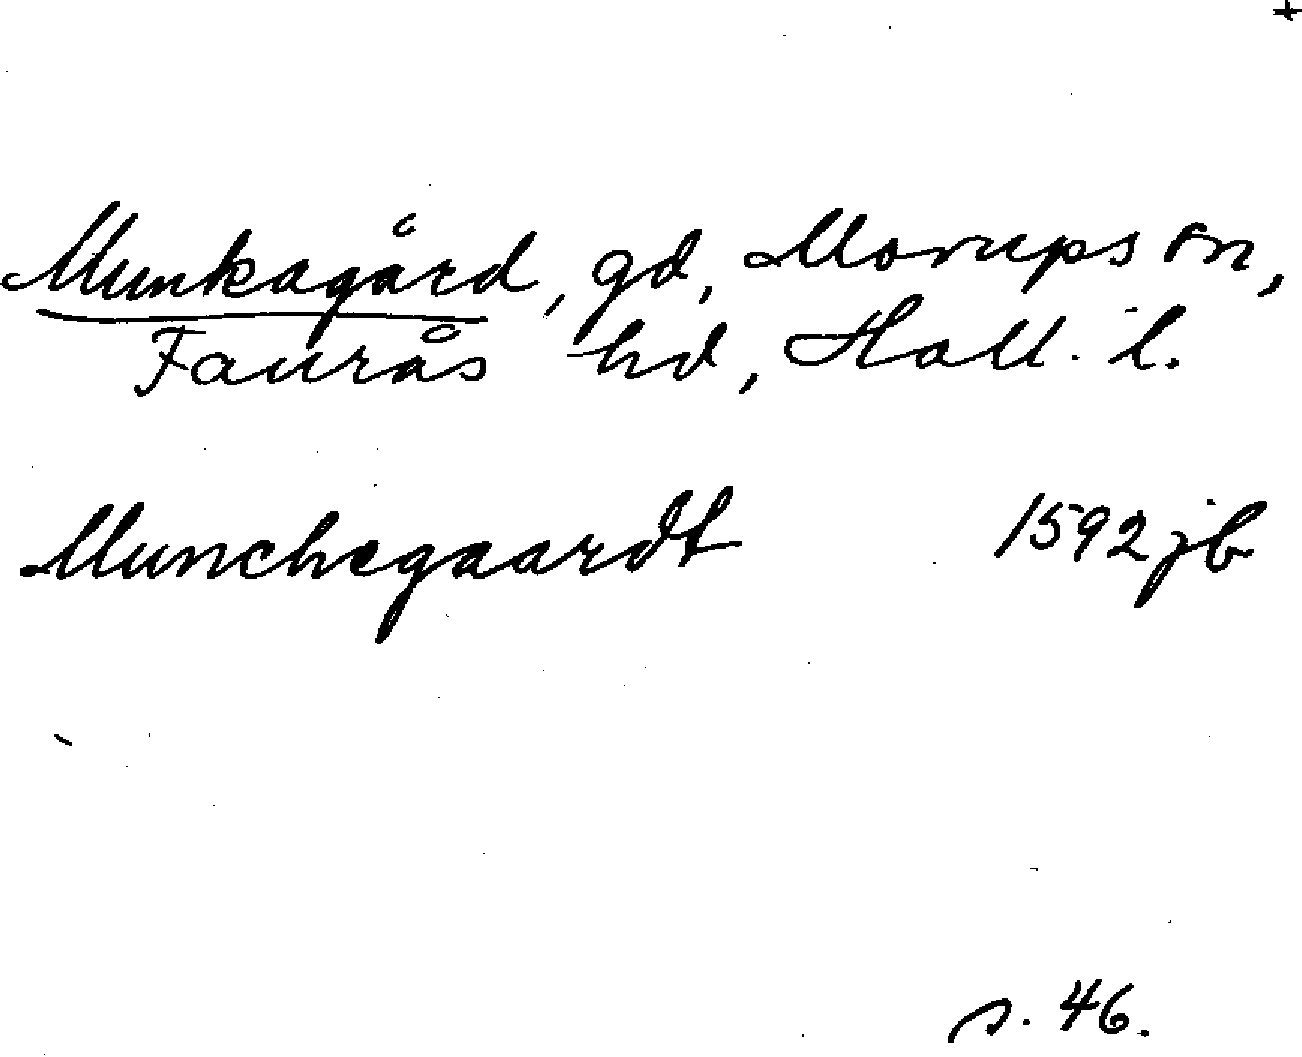 +
Munkagård, gd, Morups sn,
Faurås hd, Hall. l.
Munchegaardt 1592 jb
s. 46.